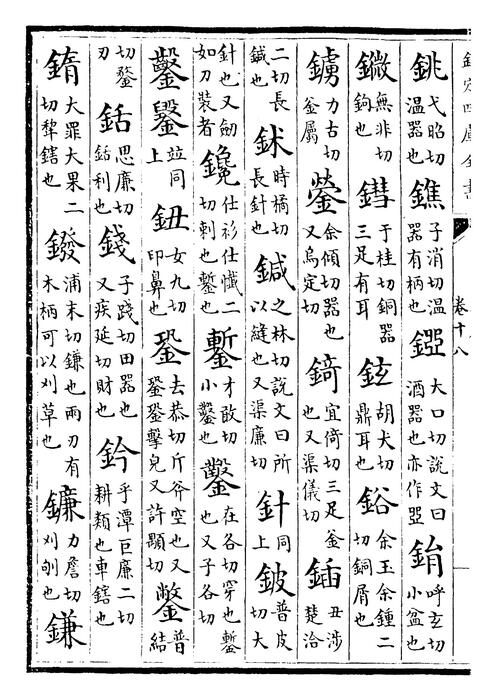 卷十八
銚弋昭切溫器也鐎子消切溫器有柄也大口切說文曰酒器也亦作鋗呼玄切小盆也
無非切鉤也鏏于桂切銅器三足有耳鉉胡犬切鼎耳也鋊余玉余鍾二切銅屑也
鐪力古切釜屬鎣余傾切器也又烏定切錡宜倚切三足釜也又渠儀切鍤丑涉楚洽
二切長鍼也鉥時橘切長針也鍼之林切說文曰所以縫也又渠廉切針同上鈹普皮切大
針也又劎如刀裝者鑱仕衫仕懺二切刺也鏨也鏨才敢切小鑿也鑿在各切穿也鏨也又子各切
竝同上鈕女九切印鼻也銎去恭切斤斧空也又銎銎擊皃又許顒切鐅普結
切鏊刃銛思廉切銛利也錢子踐切田器也又疾延切財也鈐乎潭巨廉二切耕類也車鎋也
大罪大果二切犂鎋也鏺浦末切鎌也兩刃有木柄可以刈草也鐮力詹切刈刎也鎌